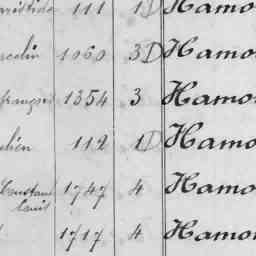 aristide 111 1D Hamo
rcelin 1060 3D Hamo
françois 1354 3 Hamo
ulien 112 1D Hamo
Constant 1747 4 Hamo
Louis
1717 4 Hamo